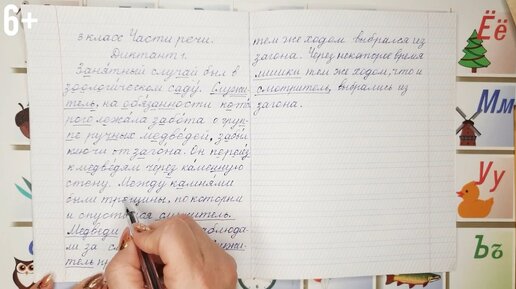 6+
3 класс Части речи.
Диктант 1.
Занятный случай был в
зоологическом саду. Служи-
тель, на обязанности кото-
рого лежала забота о груп-
пе ручных медведей, забыл
ключи от загона. Он перелез
к медведям через каменную
стену. Между камнями
были трещины, по которым
и спустился служитель.
Медведи
ми за
тель
тем же ходом выбрался из
загона. Через некоторое время
мишки тем же ходом, что и
смотритель, выбрались из
загона.
Ёё
Мм
Уу
Ъъ